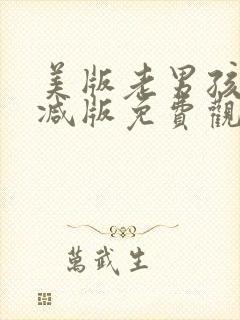 美版老男孩
减版免費觀
萬武生